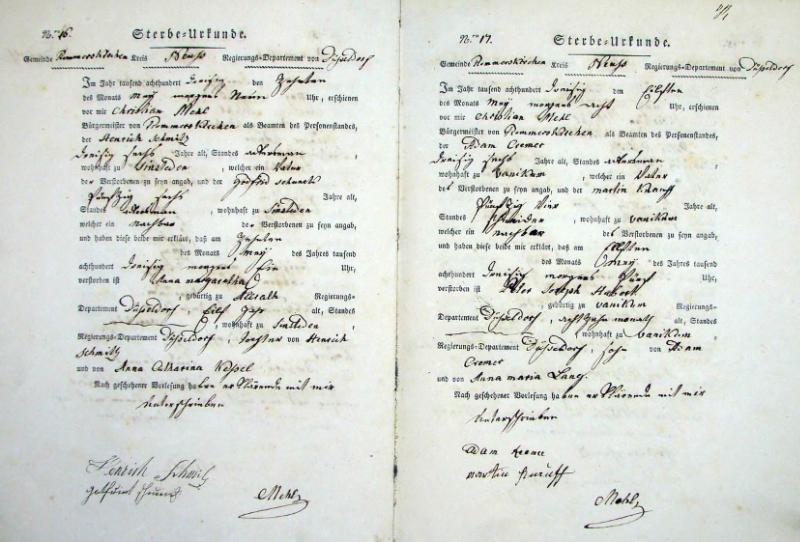 N.ro 16. Sterbe-Urkunde.
Gemeinde Rommerskirchen Kreis Neuss Regierungs-Departement von Düsseldorf
Im Jahr tausend achthundert dreisig den Zehnten
des Monats May morgens Neun Uhr, erschienen
vor mir Christian Mehl
Bürgermeister von Rommerskirchen als Beamten des Personenstandes,
der Henrich Schmitz
dreisig sechs Jahre alt, Standes ackersman
wohnhaft zu Sinsteden, welcher ein Vater
der Verstorbenen zu seyn angab, und der Godfrid
fünfzig sechs Jahre alt,
Standes ackersman, wohnhaft zu Sinsteden
welcher ein nachbar der Verstorbenen zu seyn angab,
und haben diese beide mir erklärt, daß am Zehnten
des Monats May des Jahres tausend
achthundert dreisig morgens Ein Uhr,
verstorben ist Anna margaretha
, gebürtig zu Regierungs-
Departement Düsseldorf, Eilf Jahr alt, Standes
, wohnhaft zu Sinsteden,
Regierungs-Departement Düsseldorf, Tochter von Henrich
Schmitz
und von Anna Catharina Kessel
Nach geschehener Vorlesung haben erklärende mit mir
unterschrieben
Henrich Schmitz
Mehl
N.ro 17. Sterbe-Urkunde.
Gemeinde Rommerskirchen Kreis Neuss Regierungs-Departement von Düsseldorf
Im Jahr tausend achthundert dreisig den Eilften
des Monats May morgens acht Uhr, erschienen
vor mir Christian Mehl
Bürgermeister von Rommerskirchen als Beamten des Personenstandes,
der Adam Cremer
dreisig sechs Jahre alt, Standes ackersman
wohnhaft zu vanikum, welcher ein Vater
des Verstorbenen zu seyn angab, und der martin
fünfzig vier Jahre alt,
Standes Schneider, wohnhaft zu vanikum
welcher ein nachbar des Verstorbenen zu seyn angab,
und haben diese beide mir erklärt, daß am Eilften
des Monats May des Jahres tausend
achthundert dreisig morgens fünf Uhr,
verstorben ist Peter Joseph Hubert
, gebürtig zu vanikum Regierungs-
Departement Düsseldorf, achtzehn monath alt, Standes
, wohnhaft zu vanikum,
Regierungs-Departement Düsseldorf, Sohn von Adam
Cremer
und von Anna maria Lang
Nach geschehener Vorlesung haben erklärende mit mir
unterschrieben
Adam
martin
Mehl